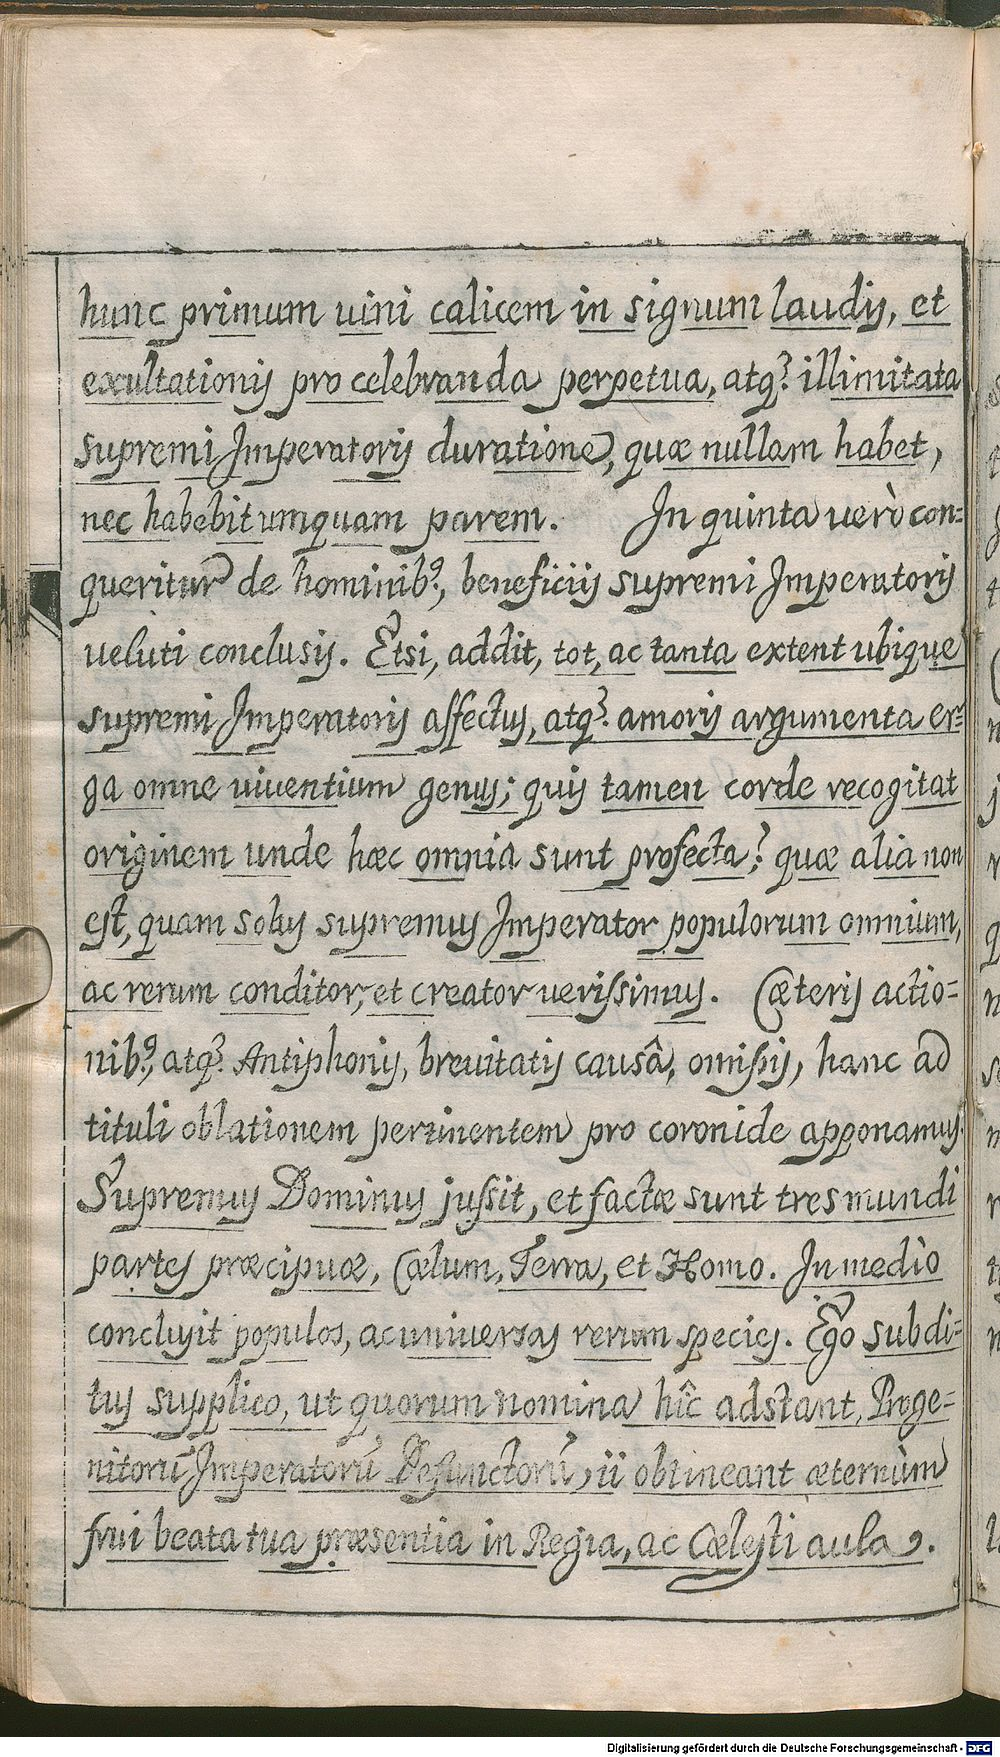 hunc primum uini calicem in signum laudis, et
exultationis pro celebranda perpetua, atq; illimitata
supremi Imperatoris duratione, quæ nullam habet,
nec habebit umquam parem. In quinta uerò con=
queritur de hominibꝰ, beneficiis supremi Imperatoris
ueluti conclusis. Etsi, addit, tot, ac tanta extent ubique
supremi Imperatoris affectus, atq; amoris argumenta er=
ga omne uiuentium genus; quis tamen corde recogitat
originem unde hæc omnia sunt profecta? quæ alia non
est, quam solus supremus Imperator populorum omnium,
ac rerum conditor, et creator uerissimus. Cæteris actio=
nibꝰ, atq; Antiphonis, breuitatis causâ, omissis, hanc ad
tituli oblationem pertinentem pro coronide apponamus.
Supremus Dominus jussit, et factæ sunt tres mundi
partes præcipuæ, Cælum, Terra, et Homo. In mediò
conclusit populos, ac uniuersas rerum species. Ego subdi=
tus supplico, ut quorum nomina hîc adstant, Proge=
nitorũ Imperatorũ Defunctorũ, ii obtineant æternùm
frui beata tua præsentia in Regia, ac Cælesti aula.
Digitalisierung gefördert durch die Deutsche Forschungsgemeinschaft - DFG